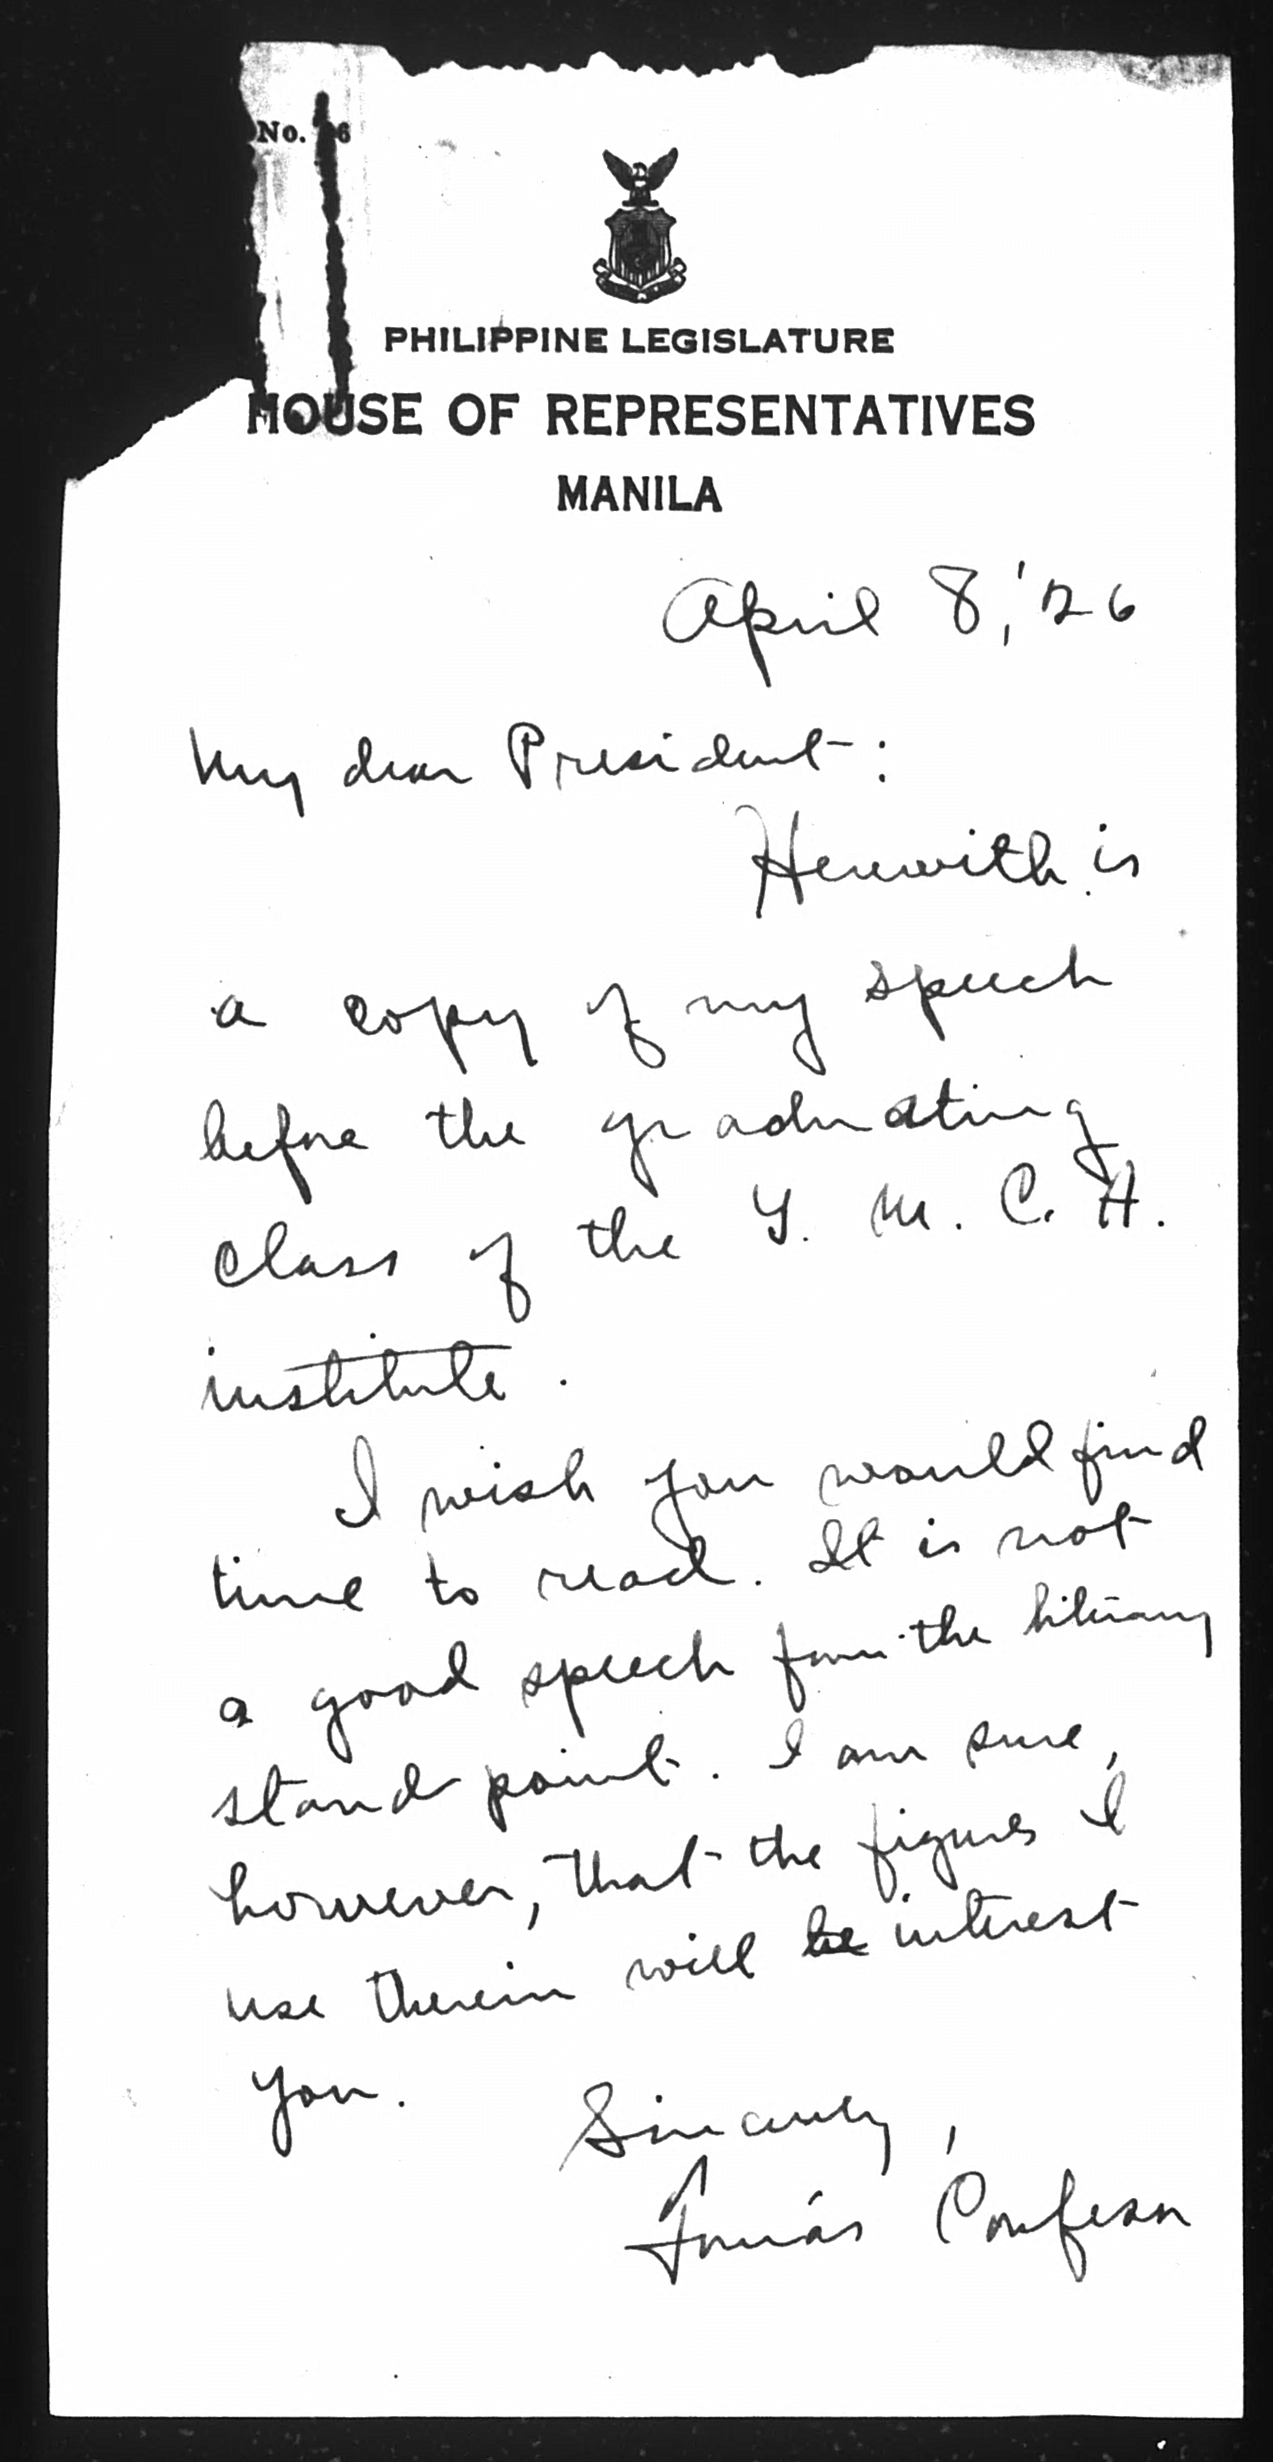 No. 6
PHILIPPINE LEGISLATURE
HOUSE OF REPRESENTATIVES
MANILA
April 8, '26
My dear President:
Herewith is
a copy of my speech
before the graduating
class of the Y. M. C. A.
institute.
I wish you would find
time to read. It is not
a good speech from the literary
stand point. I am sure,
however, that the figures I
use therein will be interest
you.
Sincerely,
Tomás Confesor